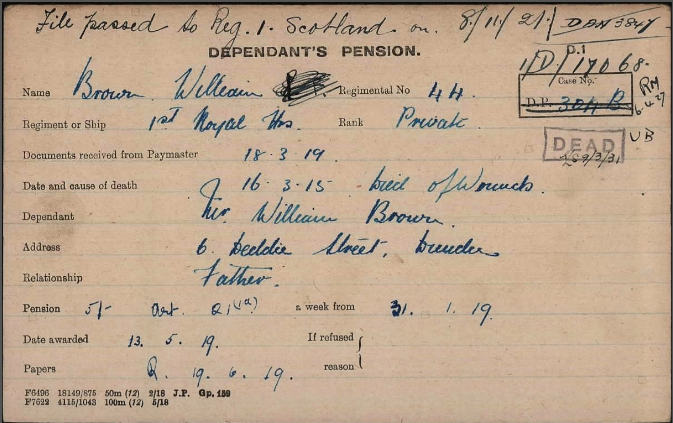 File passed to Reg. 1. Scotland on. 8/11/21. DBN 3847
DEPENDANT'S PENSION.
D.1
1/D/17068.
Name Brown. William Regimental No 44
Case No.
D.P. 304 B
RM 6.4.27
Regiment or Ship 1st Royal Hrs. Rank Private
UB
Documents received from Paymaster 18.3.19.
DEAD
9/3/31
Date and cause of death 16.3.15 Died of Wounds.
Dependant Mr. William Brown.
Address 6. Street, Dundee
Relationship Father.
Pension 5/- Art. 21(1a) a week from 31. 1. 19.
Date awarded 13. 5. 19. If refused
Papers R. 19. 6. 19. reason
F6496 18149/875 50m (12) 2/18 J.P. Gp. 159
F7622 4115/1043 100m (12) 5/18